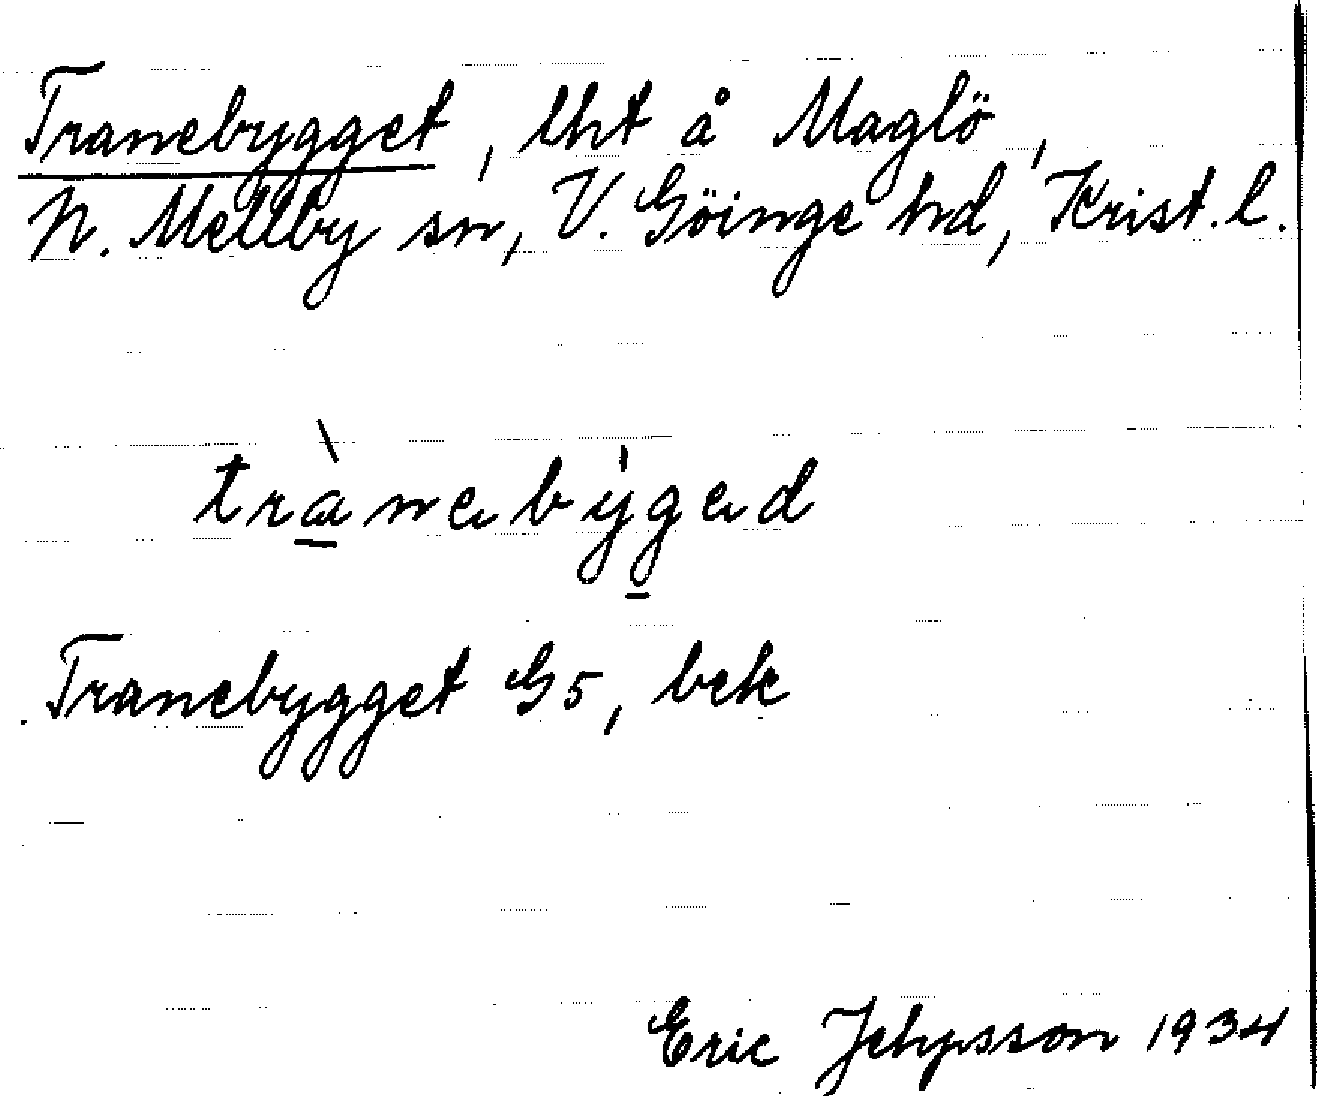 Tranebygget, lht å Maglö,
N. Mellby sn, V. Göinge hd, Krist. l.
trànabýgad
Tranebygget G5, bek
Eric Jehpsson 1934